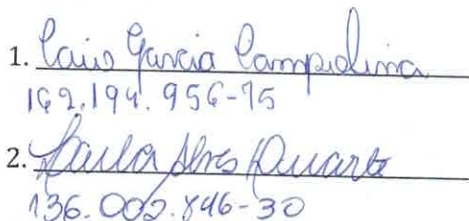 1. Caio Garcia Campolina
162.194.956-75
2. Paula Alves Duarte
136.002.846-30